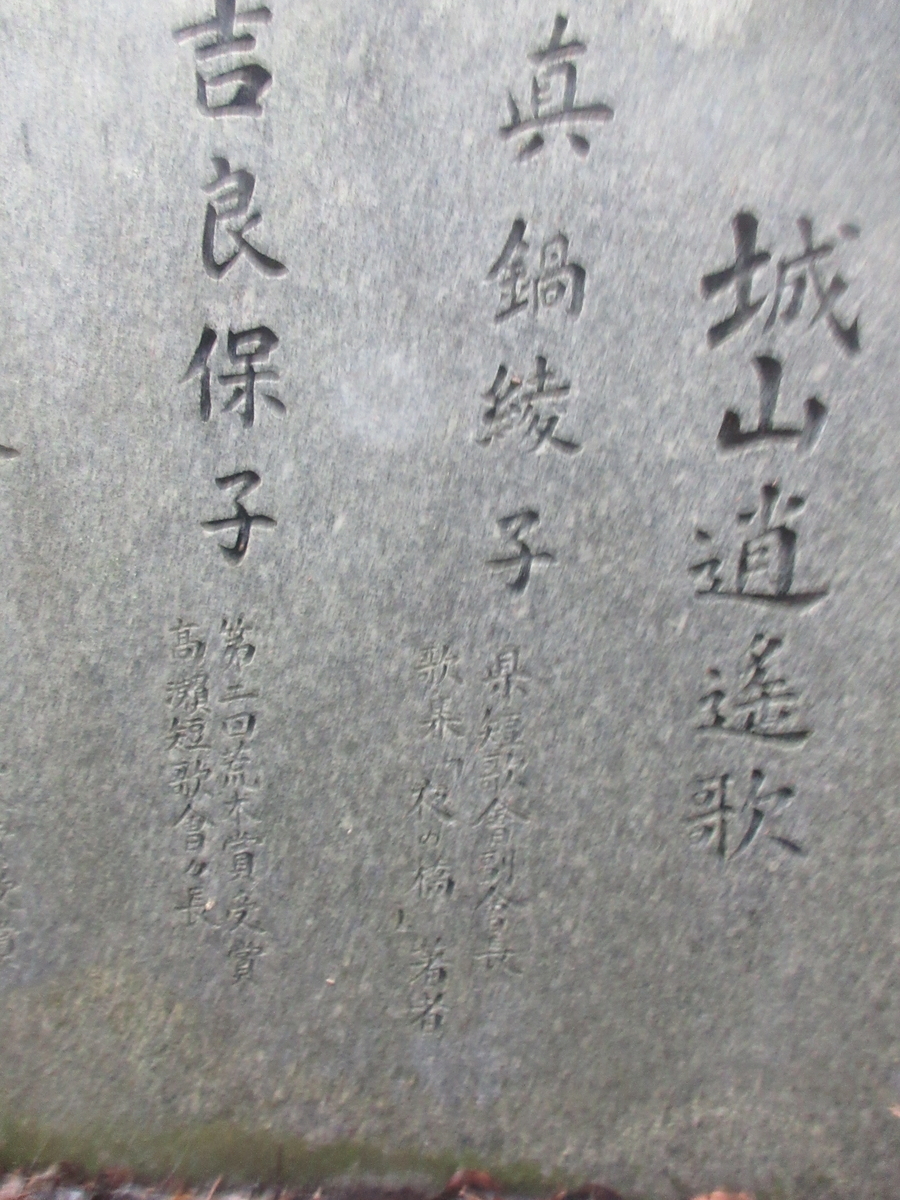 城山逍遙歌
真鍋綾子
県短歌會副會長
歌集「夜の橋」著者
吉良保子
第二回荒木賞受賞
高瀬短歌會々長